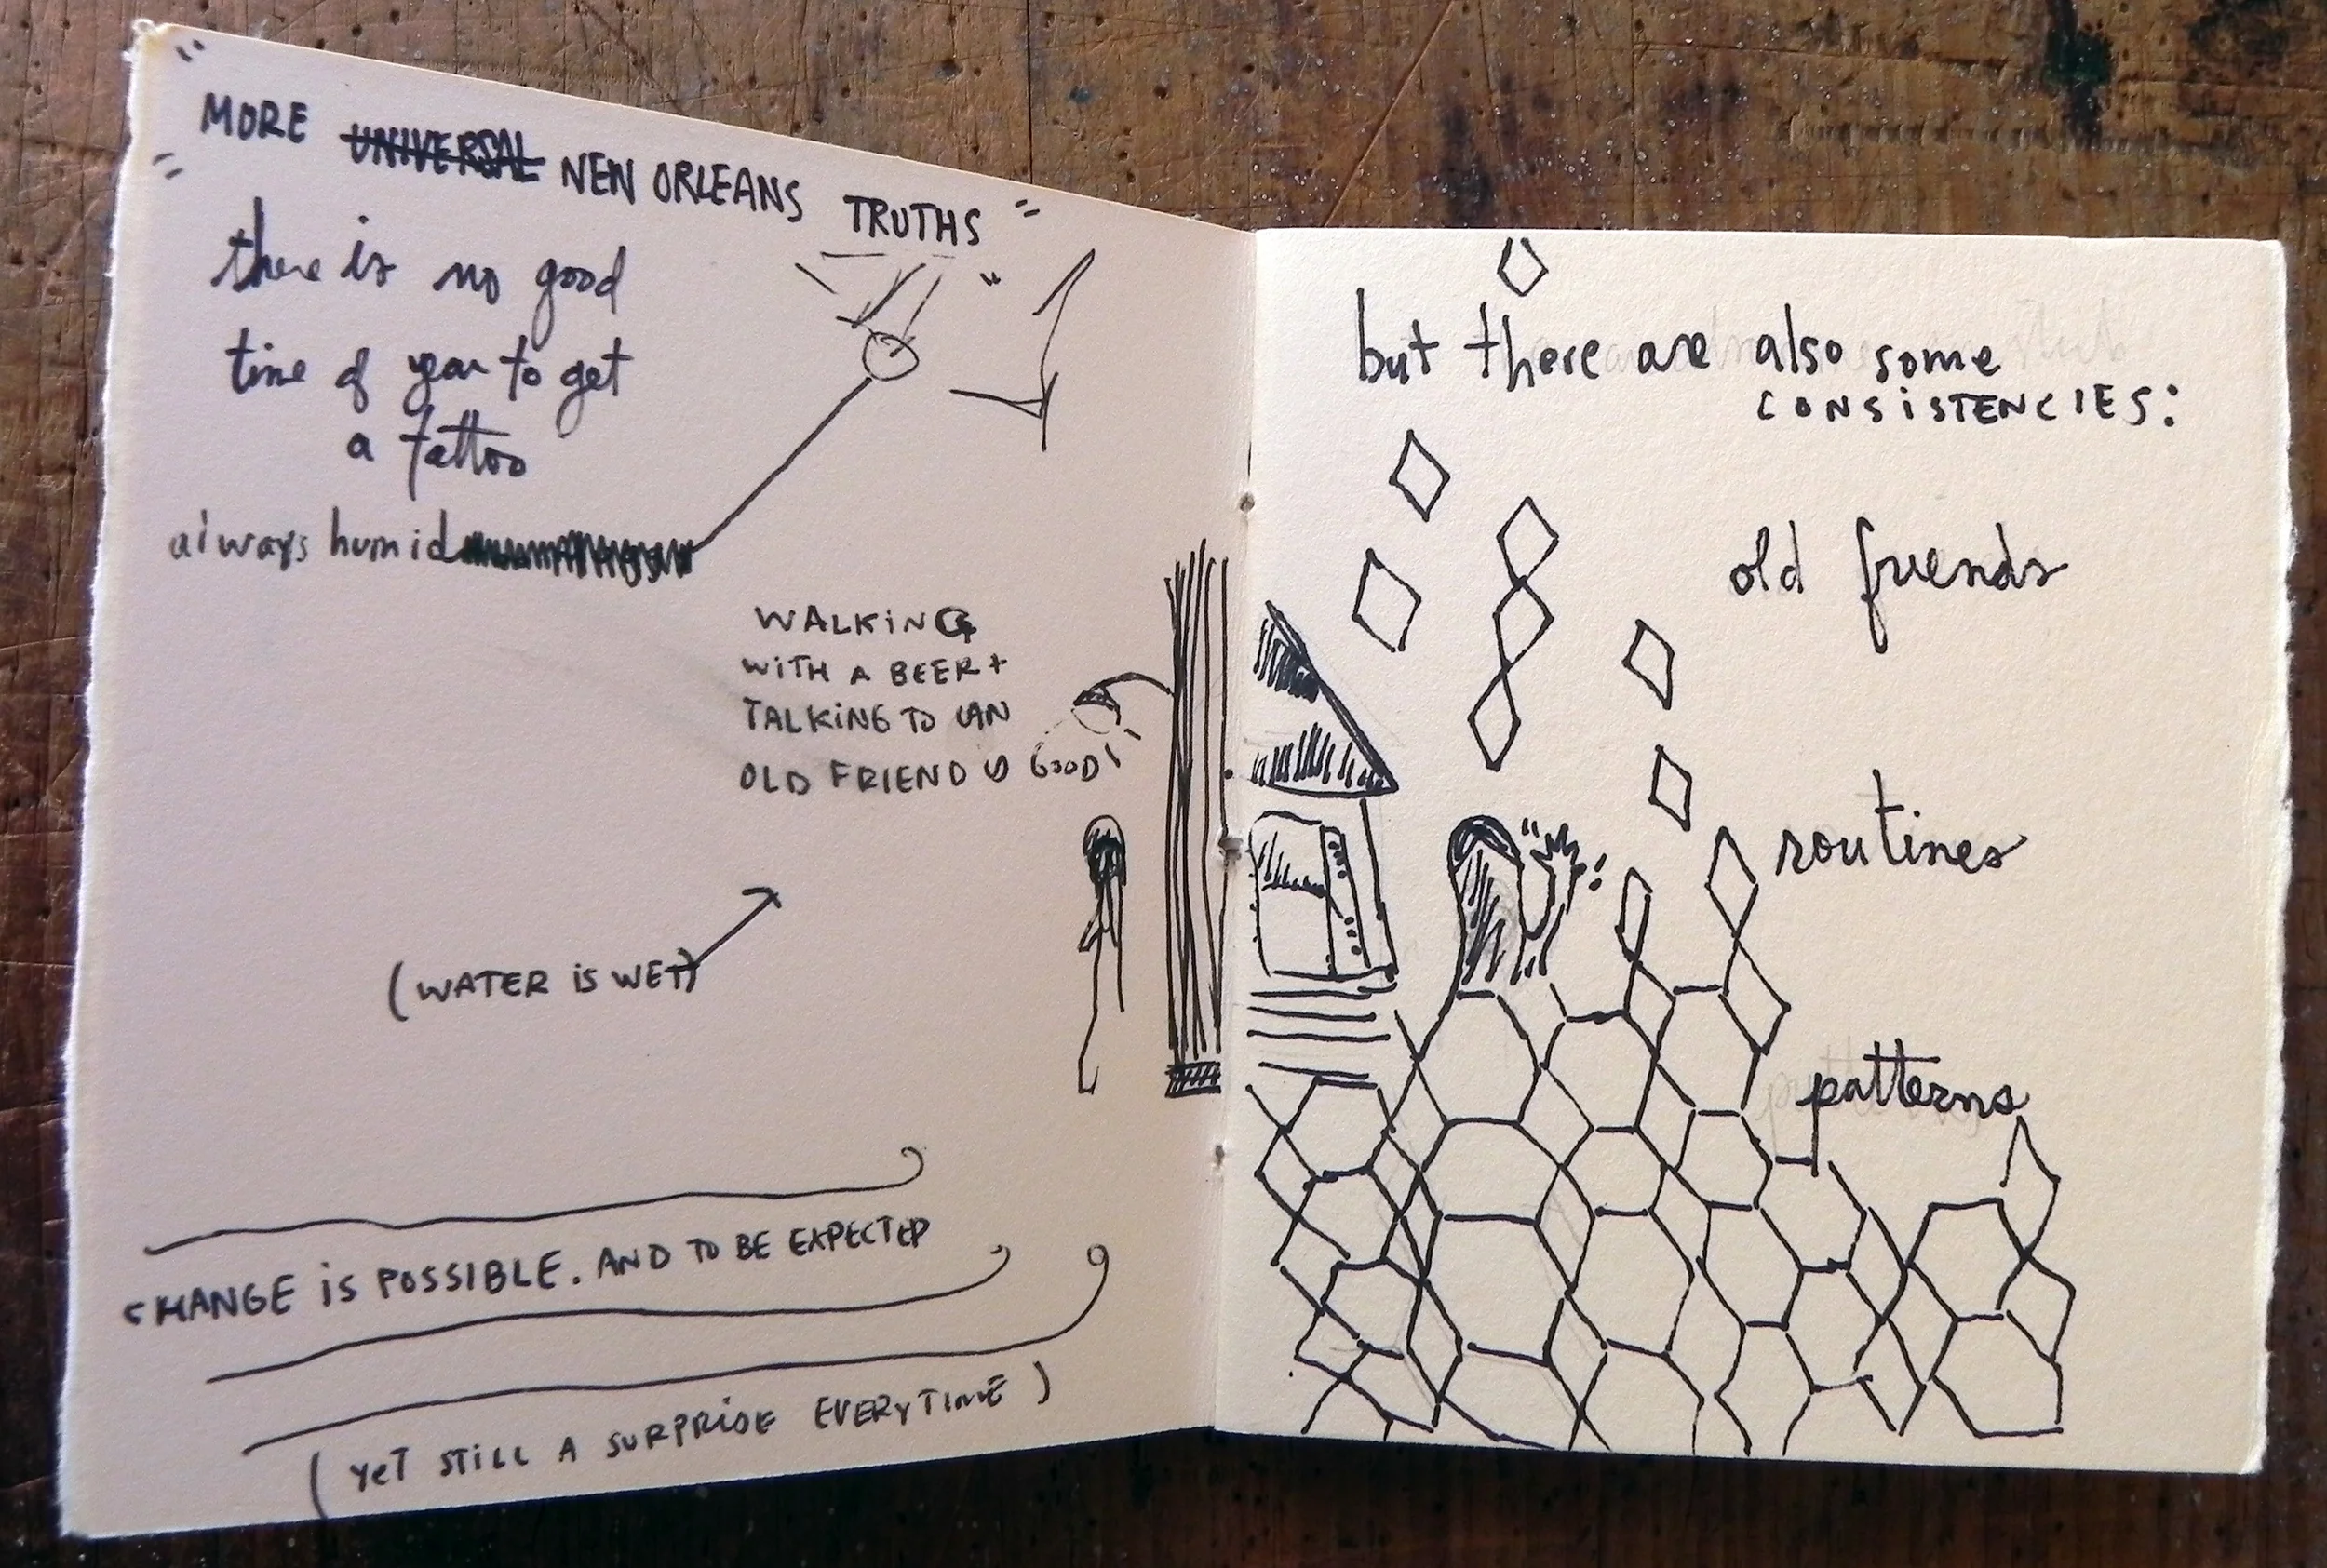 MORE UNIVERSAL NEW ORLEANS TRUTHS
there is no good
time of year to get
a tattoo
always humid
WALKING
WITH A BEER +
TALKING TO AN
OLD FRIEND IS GOOD
(WATER IS WET)
CHANGE IS POSSIBLE. AND TO BE EXPECTED
(YET STILL A SURPRISE EVERYTIME)
but there are also some
CONSISTENCIES:
old friends
routines
patterns